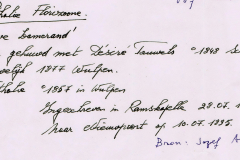 Florizoone.
Lamerand'
gehuwd met Désiré Tauwels °1848
1877 Wulpen.
°1857 in Wulpen
Ingeschreven in Ramskapelle 28.07.1
naar Nieuwpoort op 10.07.1895.
Bron: Jozef A